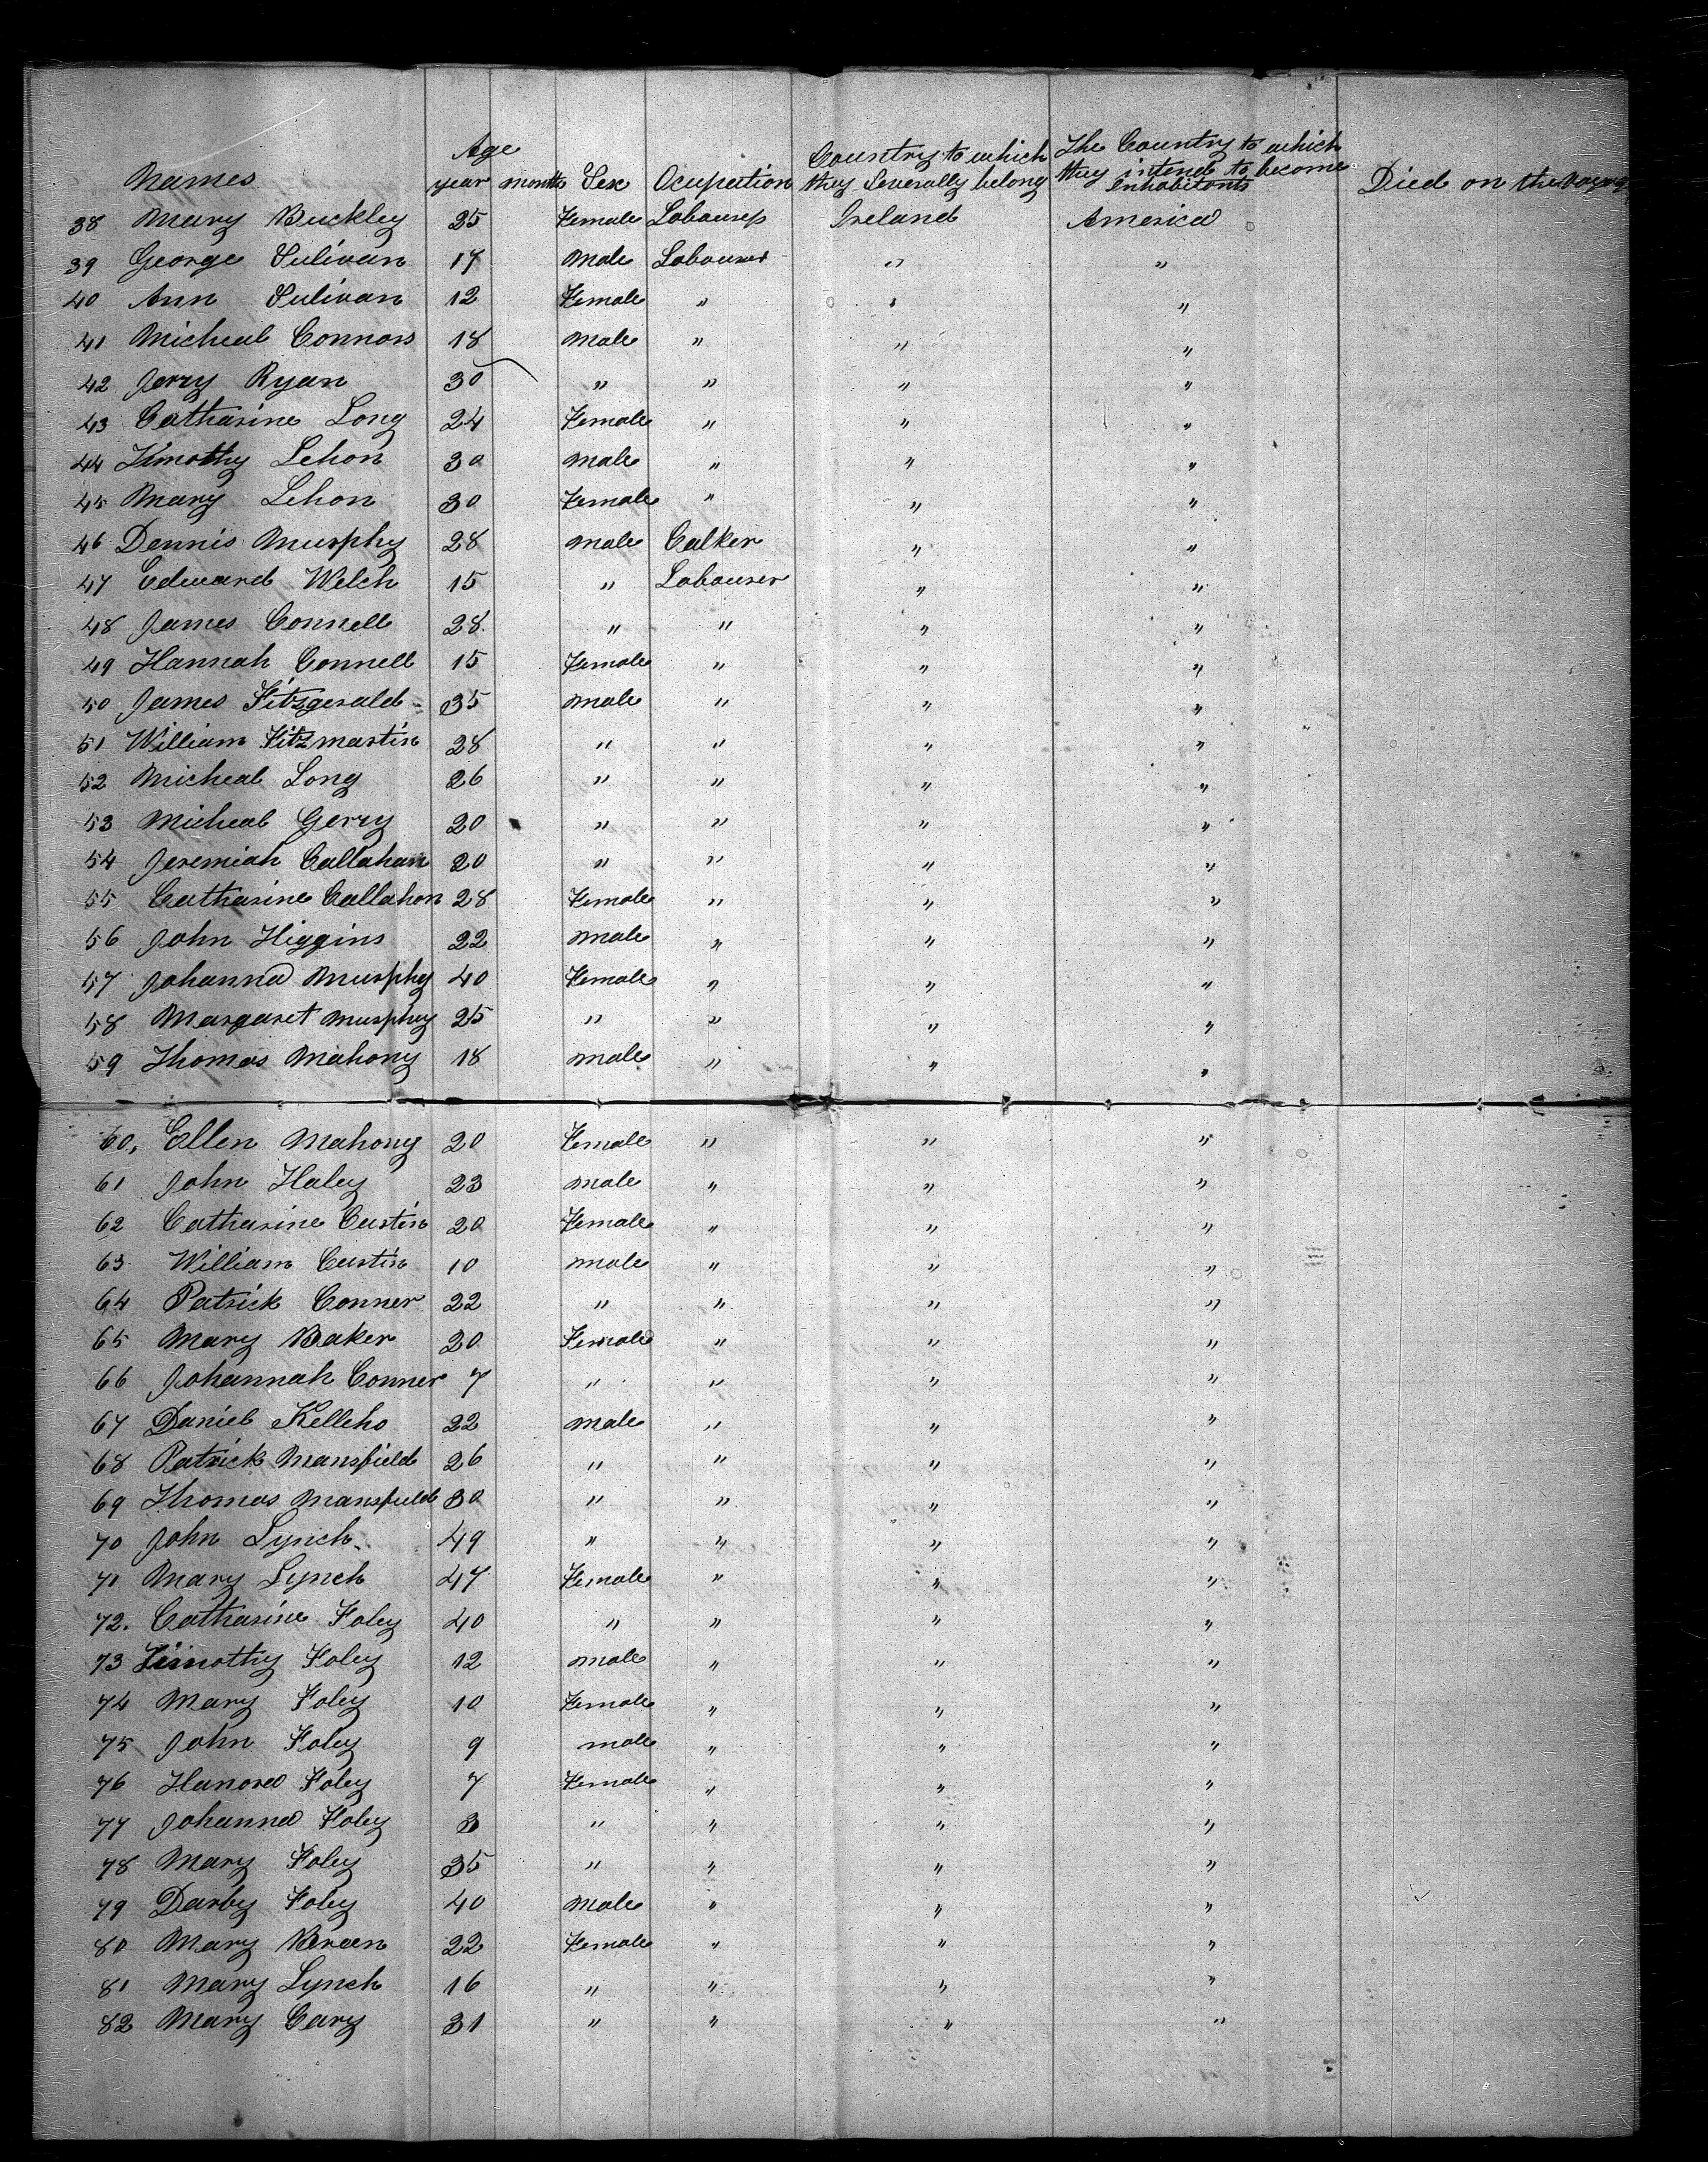 Names Age year months Sex Ocupation Country to which they Severally belong The Country to which they intend to become inhabitants Died on the voyage
38 Mary Buckley 35 Female Labourer Ireland America
39 George Sulivan 17 Male Labourer " "
40 Ann Sulivan 12 Female " " "
41 Micheal Connors 18 Male " " "
42 Jerry Ryan 30 " " " "
43 Catharine Long 24 Female " " "
44 Timothy Lehon 30 Male " " "
45 Mary Lehon 30 Female " " "
46 Dennis Murphy 28 Male Calker " "
47 Edward Welch 15 " Labourer " "
48 James Connell 28 " " " "
49 Hannah Connell 15 Female " " "
50 James Fitzgerald 35 Male " " "
51 William Fitzmartin 28 " " " "
52 Micheal Long 26 " " " "
53 Micheal Gerry 20 " " " "
54 Jeremiah Callahan 20 " " " "
55 Catharine Callahon 28 Female " " "
56 John Higgins 22 Male " " "
57 Johanna Murphy 40 Female " " "
58 Margaret Murphy 25 " " " "
59 Thomas Mahony 18 Male " " "
60, Ellen Mahony 20 Female " " "
61 John Haley 23 Male " " "
62 Catharine Custin 20 Female " " "
63 William Custin 10 Male " " "
64 Patrick Conner 22 " " " "
65 Mary Baker 20 Female " " "
66 Johannah Conner 7 " " " "
67 Daniel Kelleho 22 Male " " "
68 Patrick Mansfield 26 " " " "
69 Thomas Mansfield 30 " " " "
70 John Lynch 49 " " " "
71 Mary Lynch 47 Female " " "
72. Catharine Foley 40 " " " "
73 Timothy Foley 12 Male " " "
74 Mary Foley 10 Female " " "
75 John Foley 9 Male " " "
76 Hanora Foley 7 Female " " "
77 Johanna Foley 3 " " " "
78 Mary Foley 35 " " " "
79 Darby Foley 40 Male " " "
80 Mary Breen 22 Female " " "
81 Mary Lynch 16 " " " "
82 Mary Cary 31 " " " "